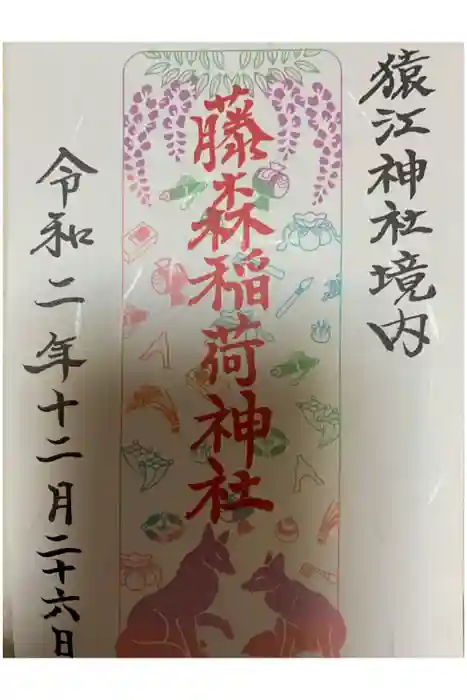 猿江神社境内
藤森稲荷神社
令和二年十二月二十六日